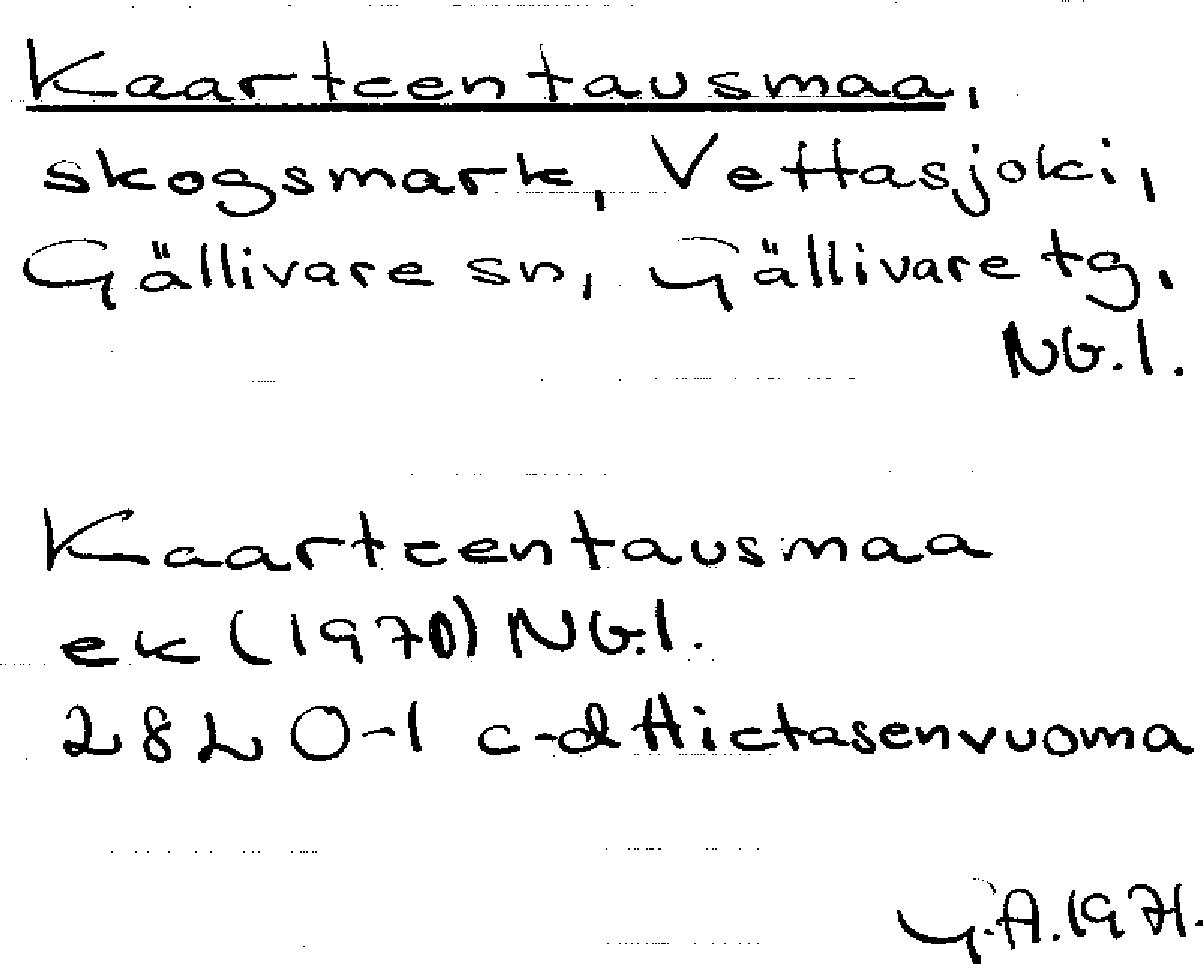 Kaarteentausmaa,
skogsmark, Vettasjoki,
Gällivare sn, Gällivare tg.
NG.1.
Kaarteentausmaa
ek (1970) NG.1.
28L 0-1 c-d Hietasenvuoma
G.A.1971.